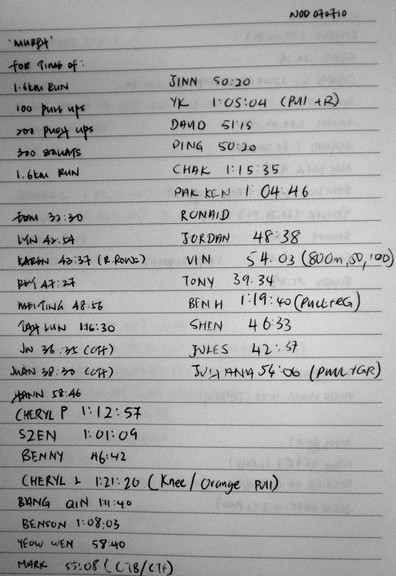 WOD 070710
'MURPH'
FOR TIME OF:
1.6KM RUN JINN 50:20
100 PULL UPS YK 1:05:04 (PULL +R)
200 PUSH UPS DAVID 51:15
300 SQUATS PING 50:20
1.6KM RUN CHAK 1:15:35
PAK KEN 1:04:46
32:30 RONALD
LYN 42:54 JORDAN 48:38
KAREN 43:37 (R. ROWS) VIN 54:03 (800m, 50, 100)
47:27 TONY 39:34
MEITING 48:56 BEN H 1:19:40 (PULL+RG)
LUN 1:16:30 SHEN 46:33
JN 36:35 (CTF) JULES 42:37
JUAN 38:30 (CTF) JULIANA 54:06 (PULL +GR)
HANN 58:46
CHERYL P 1:12:57
SZEN 1:01:09
BENNY 46:42
CHERYL L 1:21:20 (Knee/Orange Pull)
BANG QIN 1:11:40
BENSON 1:08:03
YEOW WEN 58:40
MARK 55:08 (CTB/CTF)